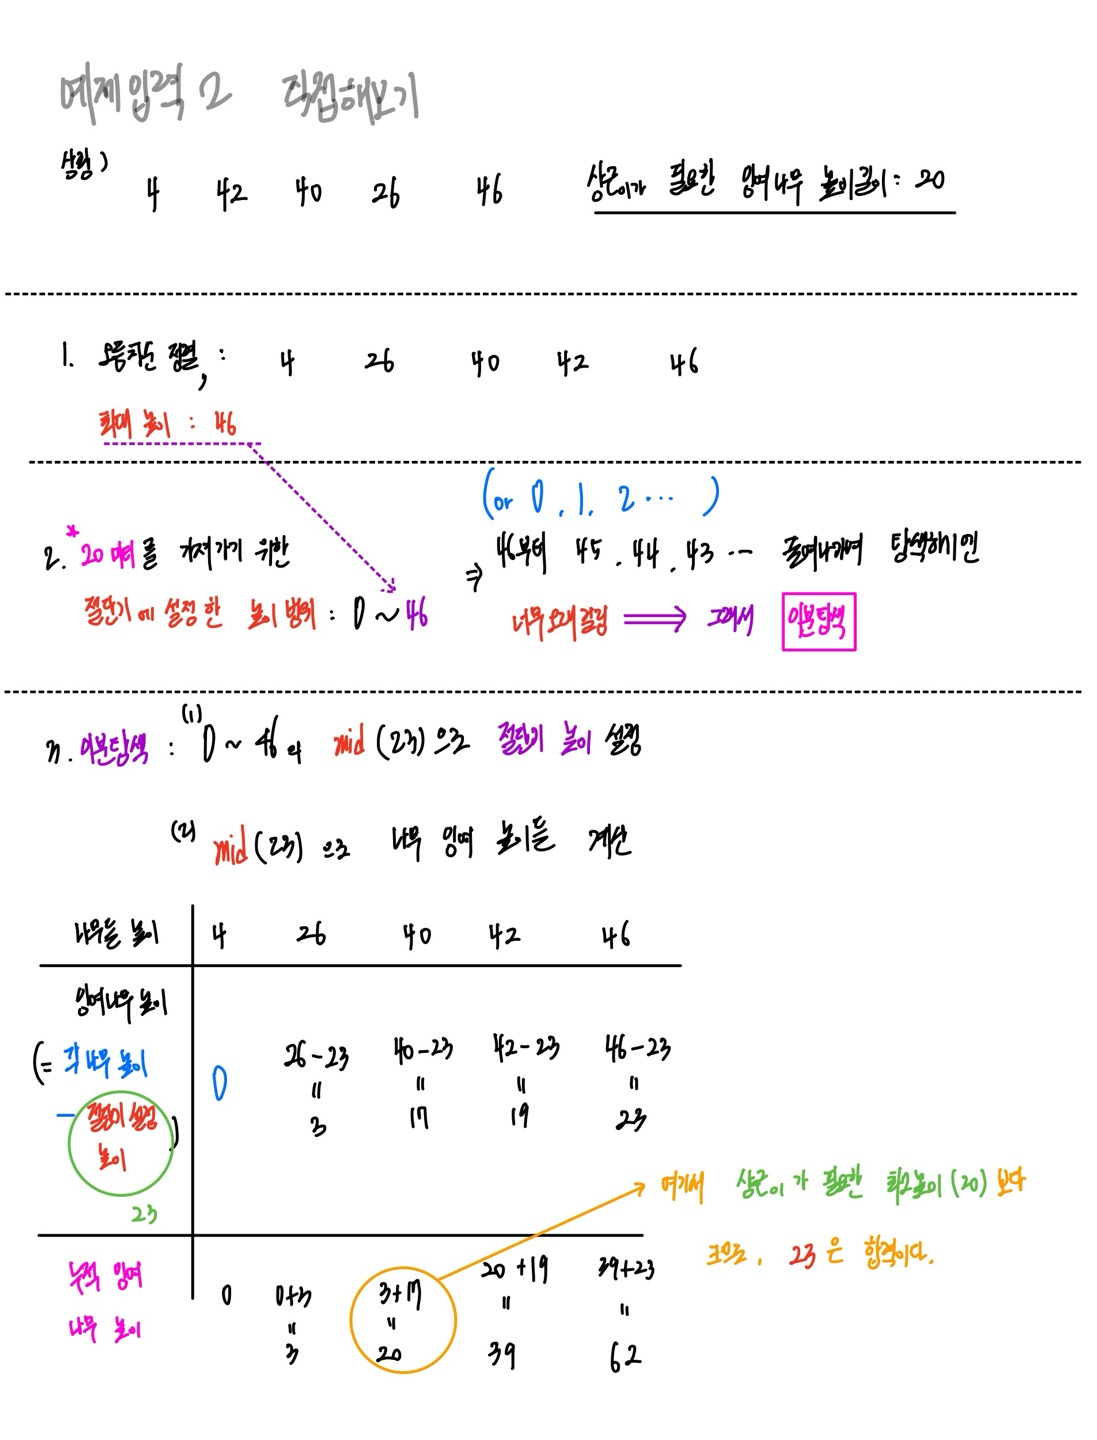 예제입력 2 직접해보기
상황)
4 42 40 26 46 상근이가 필요한 잉여나무 높이길이 : 20
1. 오름차순 정렬, : 4 26 40 42 46
최대 높이 : 46
(or 0, 1, 2 ... )
2. *20미터를 가져가기 위한 ⇒ 46부터 45, 44, 43 ... 줄여나가며 탐색하기엔
절단기에 설정한 높이 범위 : 0 ~ 46 너무 오래걸림 ⟹ 그래서 이분탐색
3. 이분탐색 : (1) 0 ~ 46의 mid (23) 으로 절단기 높이 설정
(2) mid (23) 으로 나무 잉여 높이들 계산
나무들 높이 4 26 40 42 46
잉여나무 높이
(= 각 나무 높이 0 26-23 40-23 42-23 46-23
" " " "
- 절단기 설정 3 17 19 23
높이 )
23
여기서 상근이가 필요한 최소높이 (20) 보다
크므로, 23은 합격이다.
누적 잉여 0 0+3 3+17 20+19 39+23
" " " "
나무 높이 3 20 39 62